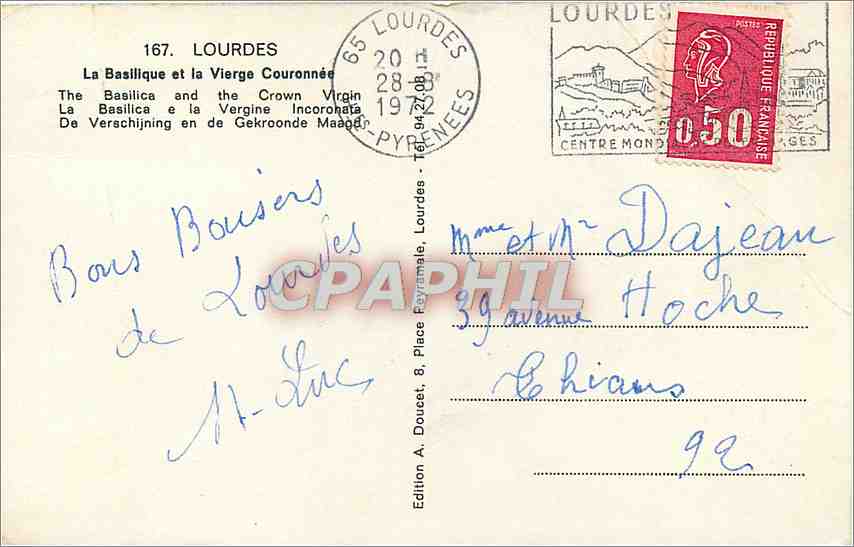 167. LOURDES
La Basilique et la Vierge Couronnée
The Basilica and the Crown Virgin
La Basilica e la Vergine Incoronata
De Verschijning en de Gekroonde Maagd
65 LOURDES
20 H
28-8
1972
PYRENEES
LOURDES
CENTRE MOND
POSTES
REPUBLIQUE FRANÇAISE
0,50
Bons Baisers
de Lourdes
CPAPHIL
Edition A. Doucet, 8, Place Peyramale, Lourdes - Tél. 94.27.08
Mme et Mr Dajean
39 avenue Hoche
Thiais
92